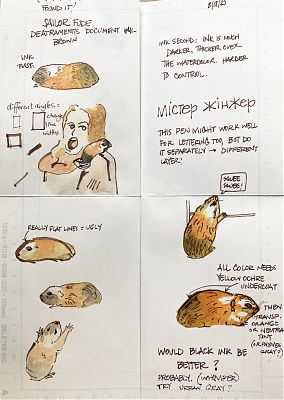 FOUND IT!
SAILOR FUDE
DEATRAMENTIS DOCUMENT INK
BROWN
INK
FIRST.
different angles =
change
line
widths
8/11/23
INK SECOND: INK IS MUCH
DARKER, THICKER OVER
THE WATERCOLOR. HARDER
TO CONTROL.
Містер Жінжер
THIS PEN MIGHT WORK WELL
FOR LETTERING TOO, BUT DO
IT SEPARATELY → DIFFERENT
LAYER!
SQUEE
SQUEE!
REALLY FLAT LINES = UGLY
ALL COLOR NEEDS
YELLOW OCHRE
UNDERCOAT
THEN
TRANSP.
ORANGE
OR NEUTRAL
TINT
GRAY?)
WOULD BLACK INK BE
BETTER?
PROBABLY. (WHIMPER)
TRY URBAN GRAY?
A